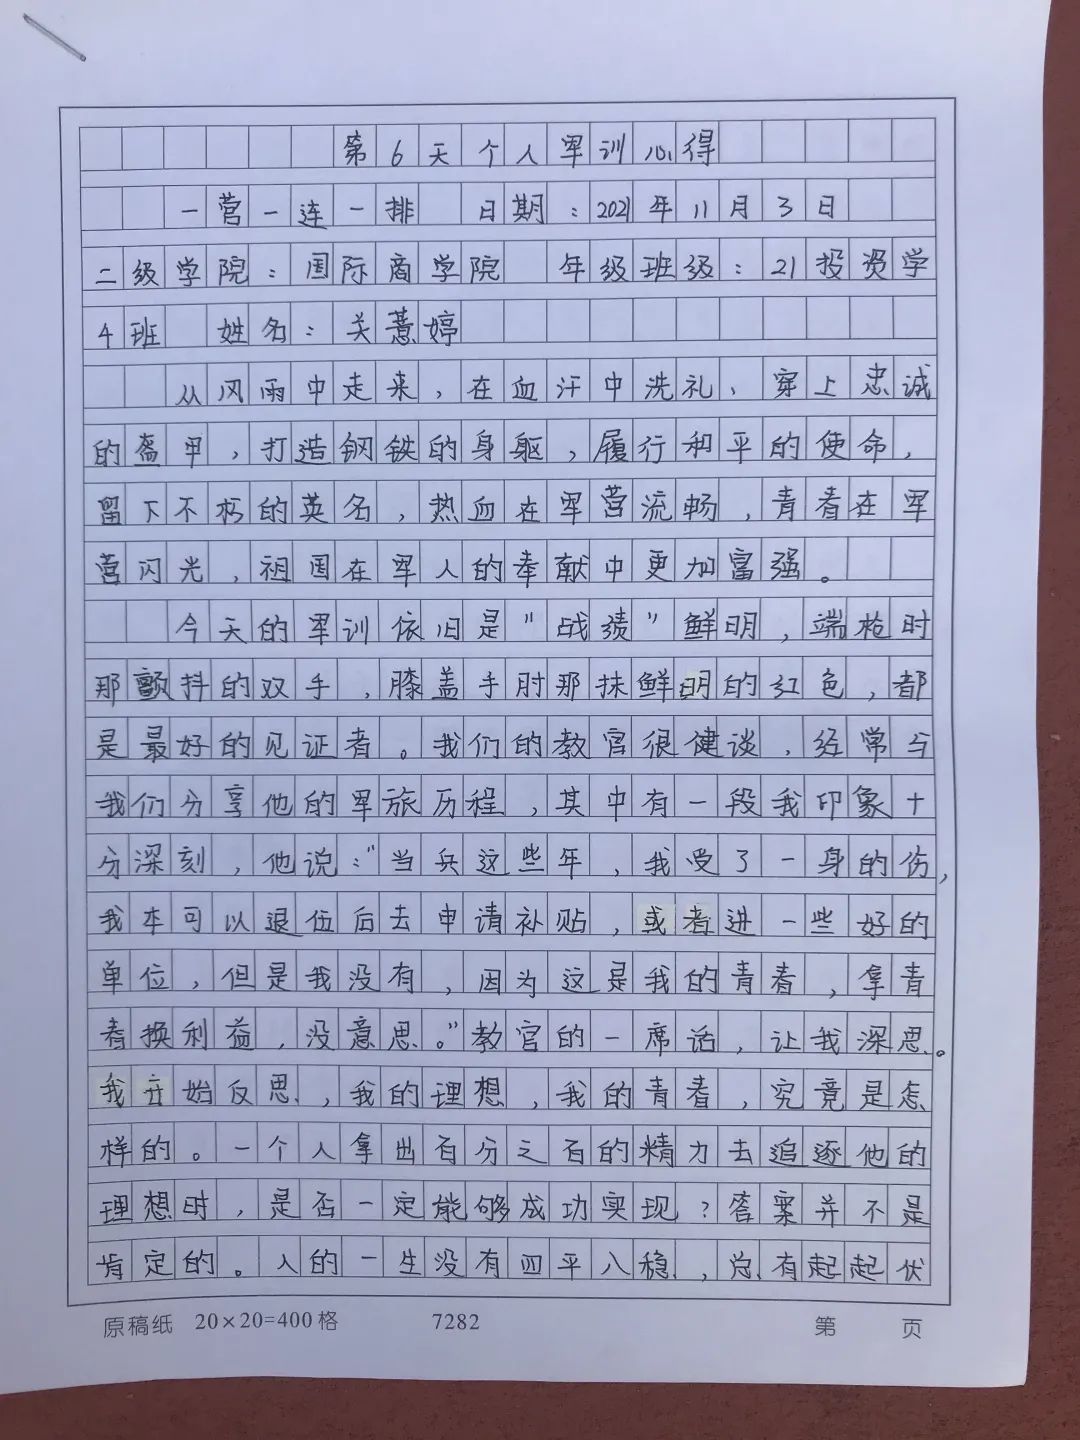 第6天个人军训心得
一营一连一排 日期：2021年11月3日
二级学院：国际商学院 年级班级：21投资学
4班 姓名：关薏婷
从风雨中走来，在血汗中洗礼、穿上忠诚
的盔甲，打造钢铁的身躯，履行和平的使命，
留下不朽的英名，热血在军营流畅，青春在军
营闪光，祖国在军人的奉献中更加富强。
今天的军训依旧是"战绩"鲜明，端枪时
那颤抖的双手，膝盖手肘那抹鲜明的红色，都
是最好的见证者。我们的教官很健谈，经常与
我们分享他的军旅历程，其中有一段我印象十
分深刻，他说："当兵这些年，我受了一身的伤，
我本可以退伍后去申请补贴，或者进一些好的
单位，但是我没有，因为这是我的青春，拿青
春换利益，没意思。"教官的一席话，让我深思。
我开始反思，我的理想，我的青春，究竟是怎
样的。一个人拿出百分之百的精力去追逐他的
理想时，是否一定能够成功实现？答案并不是
肯定的。人的一生没有四平八稳，总有起起伏
原稿纸 20×20=400格 7282 第 页